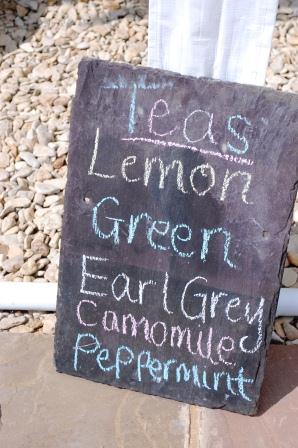 Teas
Lemon
Green
Earl Grey
Camomile
Peppermint